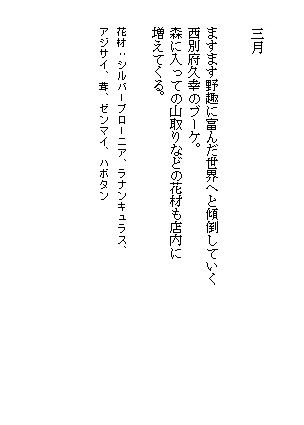 三月
ますます野趣に富んだ世界へと傾倒していく
西別府久幸のブーケ。
森に入っての山取りなどの花材も店内に
増えてくる。
花材：シルバーブローニア、ラナンキュラス、
アジサイ、茸、ゼンマイ、ハボタン